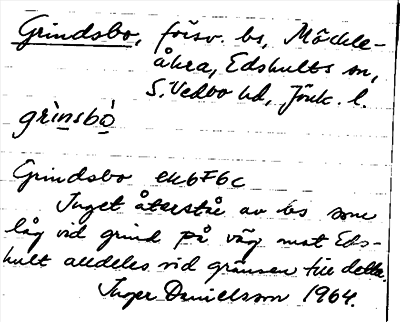 Grindsbo, försv. bs, Möckle-
åkra, Edshults sn,
S. Vedbo hd, Jönk. l.
grìnsbò
Grindsbo ek 6F6c
Inget återstår av bs som
låg vid grind på väg mot Eds-
hult alldeles vid gränsen till detta.
Inger Danielsson 1964.